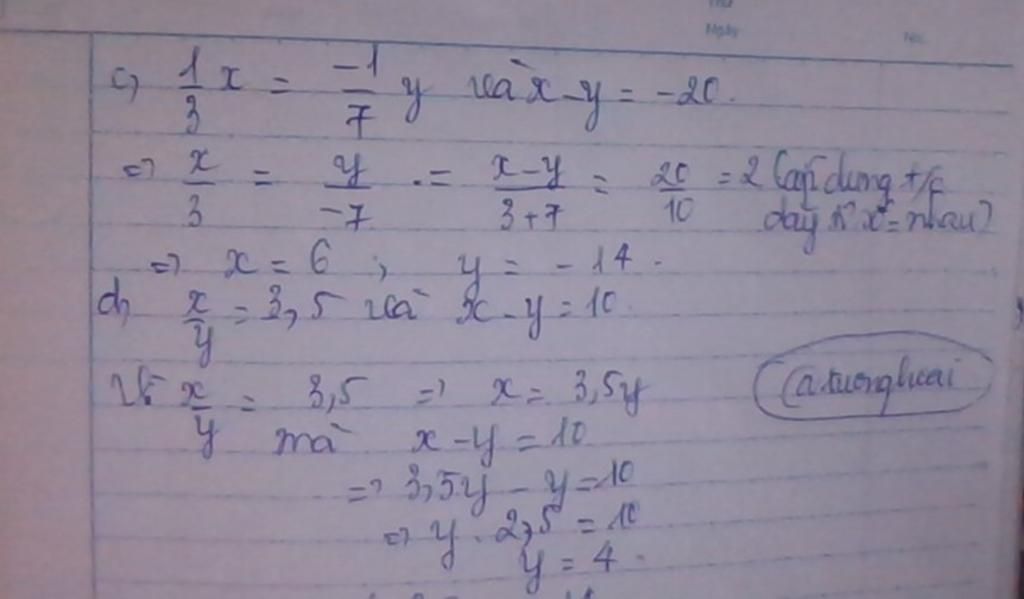 Thứ
Ngày No.
c) \frac{1}{3}x = \frac{-1}{7}y và x-y = -20.
=> \frac{x}{3} = \frac{y}{-7} .= \frac{x-y}{3+7} = \frac{20}{10} = 2 (áp dụng t/c
dãy = nhau)
=> x = 6 ; y = -14.
d, \frac{x}{y} = 3,5 và x-y = 10.
Vì \frac{x}{y} = 3,5 => x = 3,5y
mà x-y = 10
=> 3,5y - y = 10
=> y . 2,5 = 10
y = 4.